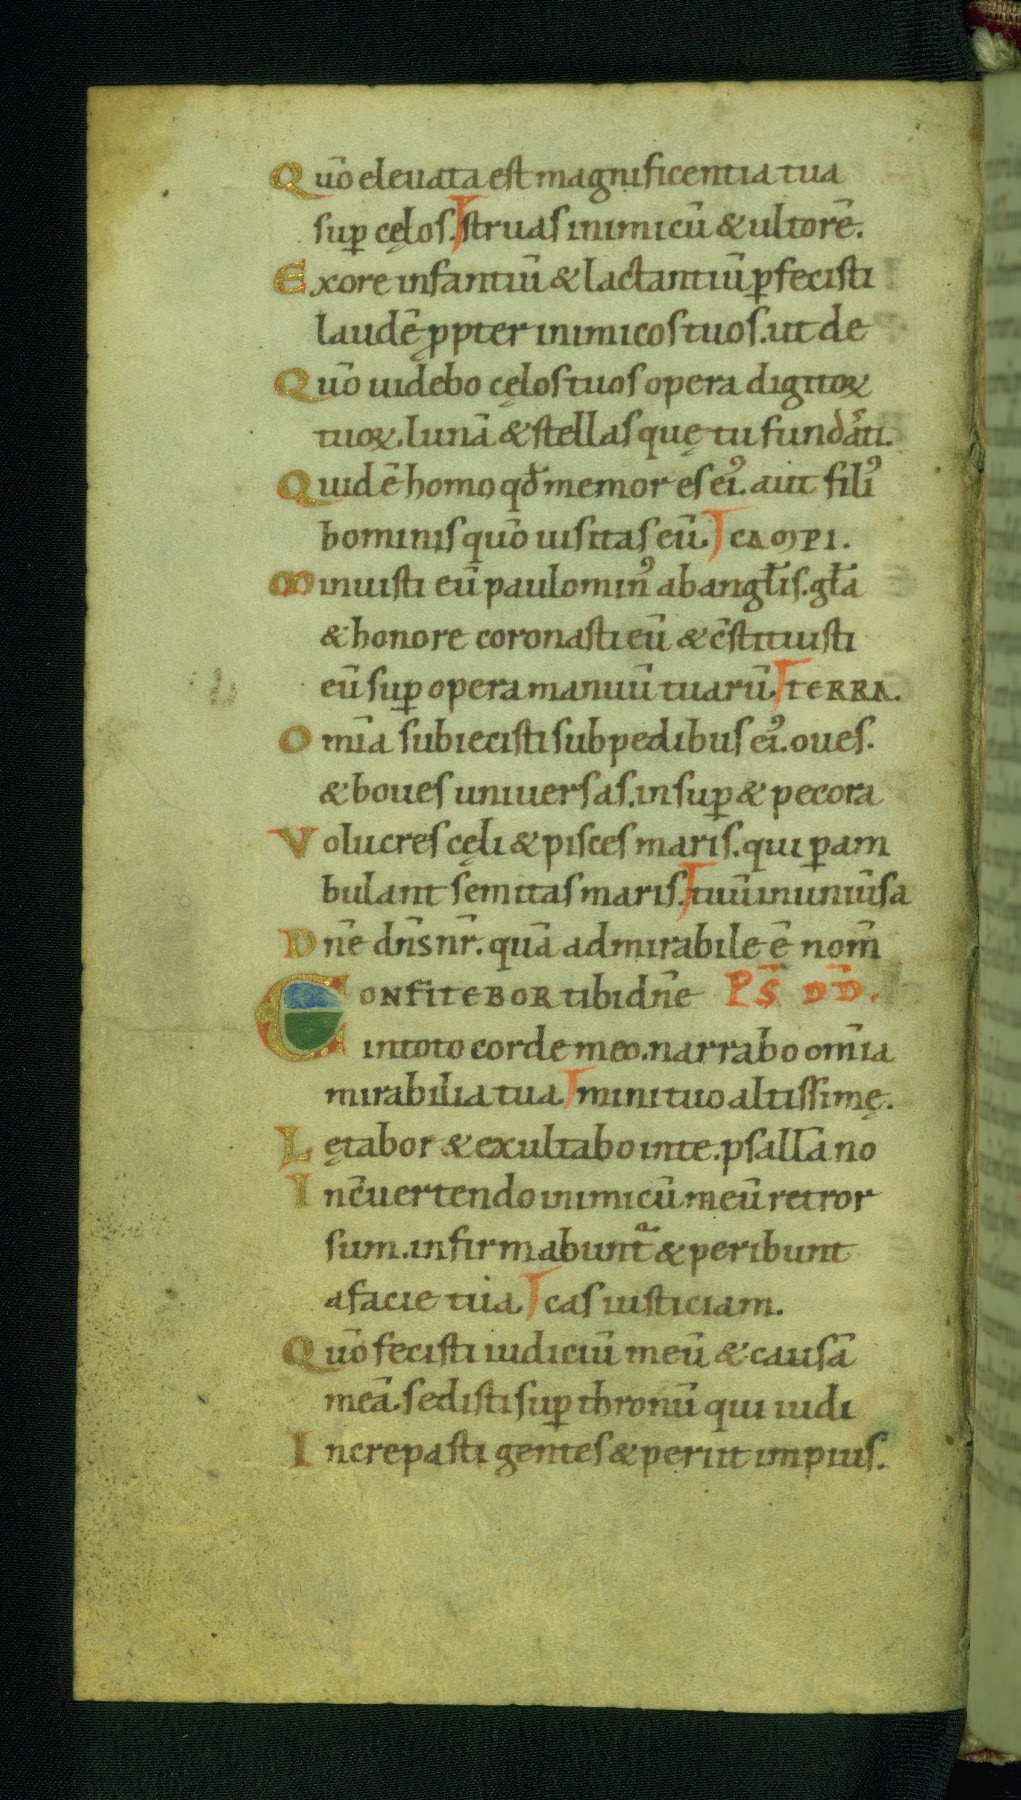 Quō eleuata est magnificentia tua
sup̄ cęlos. struas inimicū & ultorē.
Exore infantiū & lactantiū pfecisti
laudē ppter inimicos tuos. ut de
Quō uidebo cęlos tuos opera digitoꝝ
tuoꝝ. lunā & stellas quę tu fundasti.
Quid ē homo qđ memor es ei᾿. aut fili᾿
hominis quō uisitas eū. CAMPI.
Minuisti eū paulomin᾿ abangłis. gła
& honore coronasti eū & c̄stituisti
eū sup̄ opera manuū tuarū. TERRA.
Om̄ia subiecisti subpedibus ei᾿. oues.
& boues uniuersas. insup̄ & pecora
Volucres cęli & pisces maris. qui p̄am
bulant semitas maris. tuū inuniūsa
Dn̄e dn̄s nr̄. quā admirabile ē nom̄
CONFITEBOR tibi dn̄e PS̄ DD̄.
intoto corde meo. narrabo om̄ia
mirabilia tua mini tuo altissimę.
Lętabor & exultabo inte. psallā no
Inc̄uertendo inimicū meū retror
sum. infirmabunt᷑ & peribunt
afacie tua cas iusticiam.
Quō fecisti iudiciū meū & causā
meā. sedisti sup̄ thronū qui iudi
Increpasti gentes & periit impius.